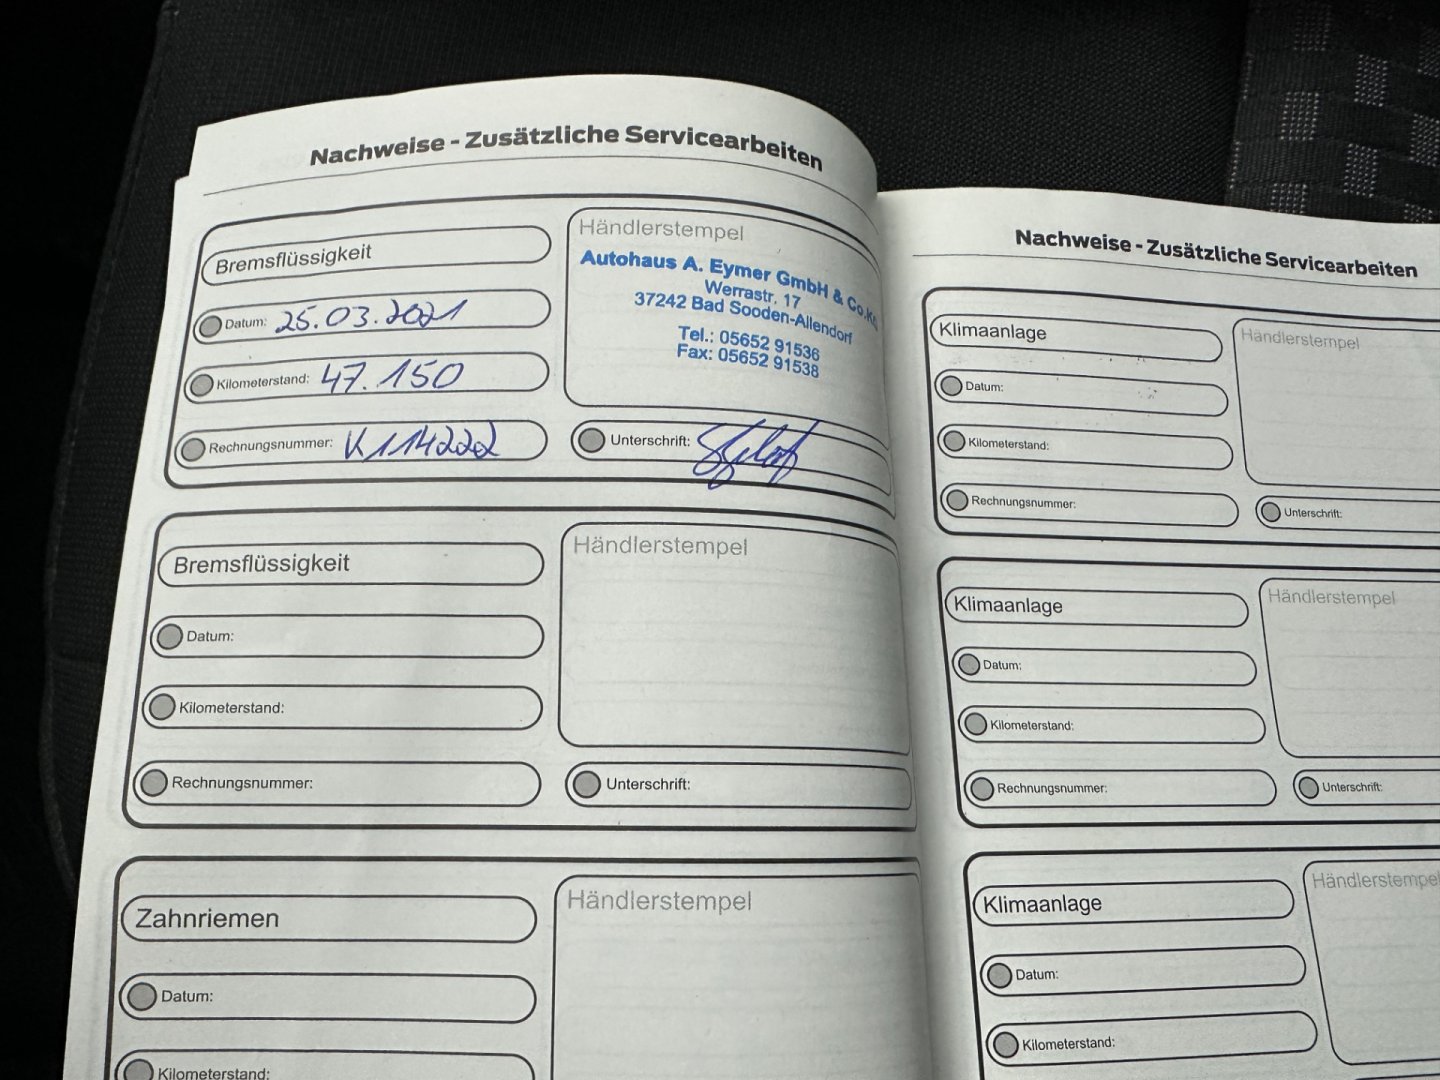 Nachweise - Zusätzliche Servicearbeiten
Bremsflüssigkeit
Datum: 25.03.2021
Kilometerstand: 47.150
Rechnungsnummer: K114222
Händlerstempel
Autohaus A. Eymer GmbH & Co.KG
Werrastr. 17
37242 Bad Sooden-Allendorf
Tel.: 05652 91536
Fax: 05652 91538
Unterschrift:
Bremsflüssigkeit
Datum:
Kilometerstand:
Rechnungsnummer:
Händlerstempel
Unterschrift:
Zahnriemen
Datum:
Kilometerstand:
Händlerstempel
Nachweise - Zusätzliche Servicearbeiten
Klimaanlage
Datum:
Kilometerstand:
Rechnungsnummer:
Händlerstempel
Unterschrift:
Klimaanlage
Datum:
Kilometerstand:
Rechnungsnummer:
Händlerstempel
Unterschrift:
Klimaanlage
Datum:
Kilometerstand:
Händlerstempel